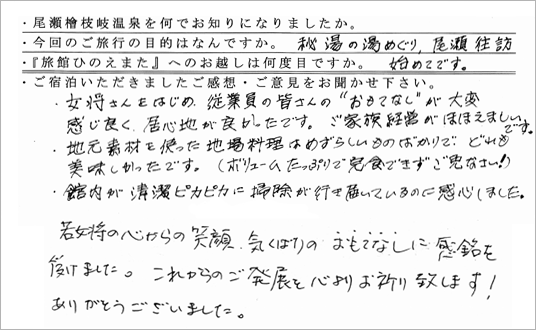 ・尾瀬檜枝岐温泉を何でお知りになりましたか。
・今回のご旅行の目的はなんですか。 秘湯の湯めぐり，尾瀬往訪
・『旅館ひのえまた』へのお越しは何度目ですか。 始めてです。
・ご宿泊いただきましたご感想・ご意見をお聞かせ下さい。
・女将さんをはじめ、従業員の皆さんの“おもてなし”が大変
感じ良く、居心地が良かったです。 ご家族経営がほほえましいです。
・地元素材を使った地場料理はめずらしいものばかりで、どれも
美味しかったです。（ボリュームたっぷりで完食できずご免なさい！）
・館内が清潔ピカピカに掃除が行き届いているのに感心しました。
若女将の心からの笑顔、気くばりのおもてなしに感銘を
受けました。これからのご発展を心よりお祈り致します！
ありがとうございました。